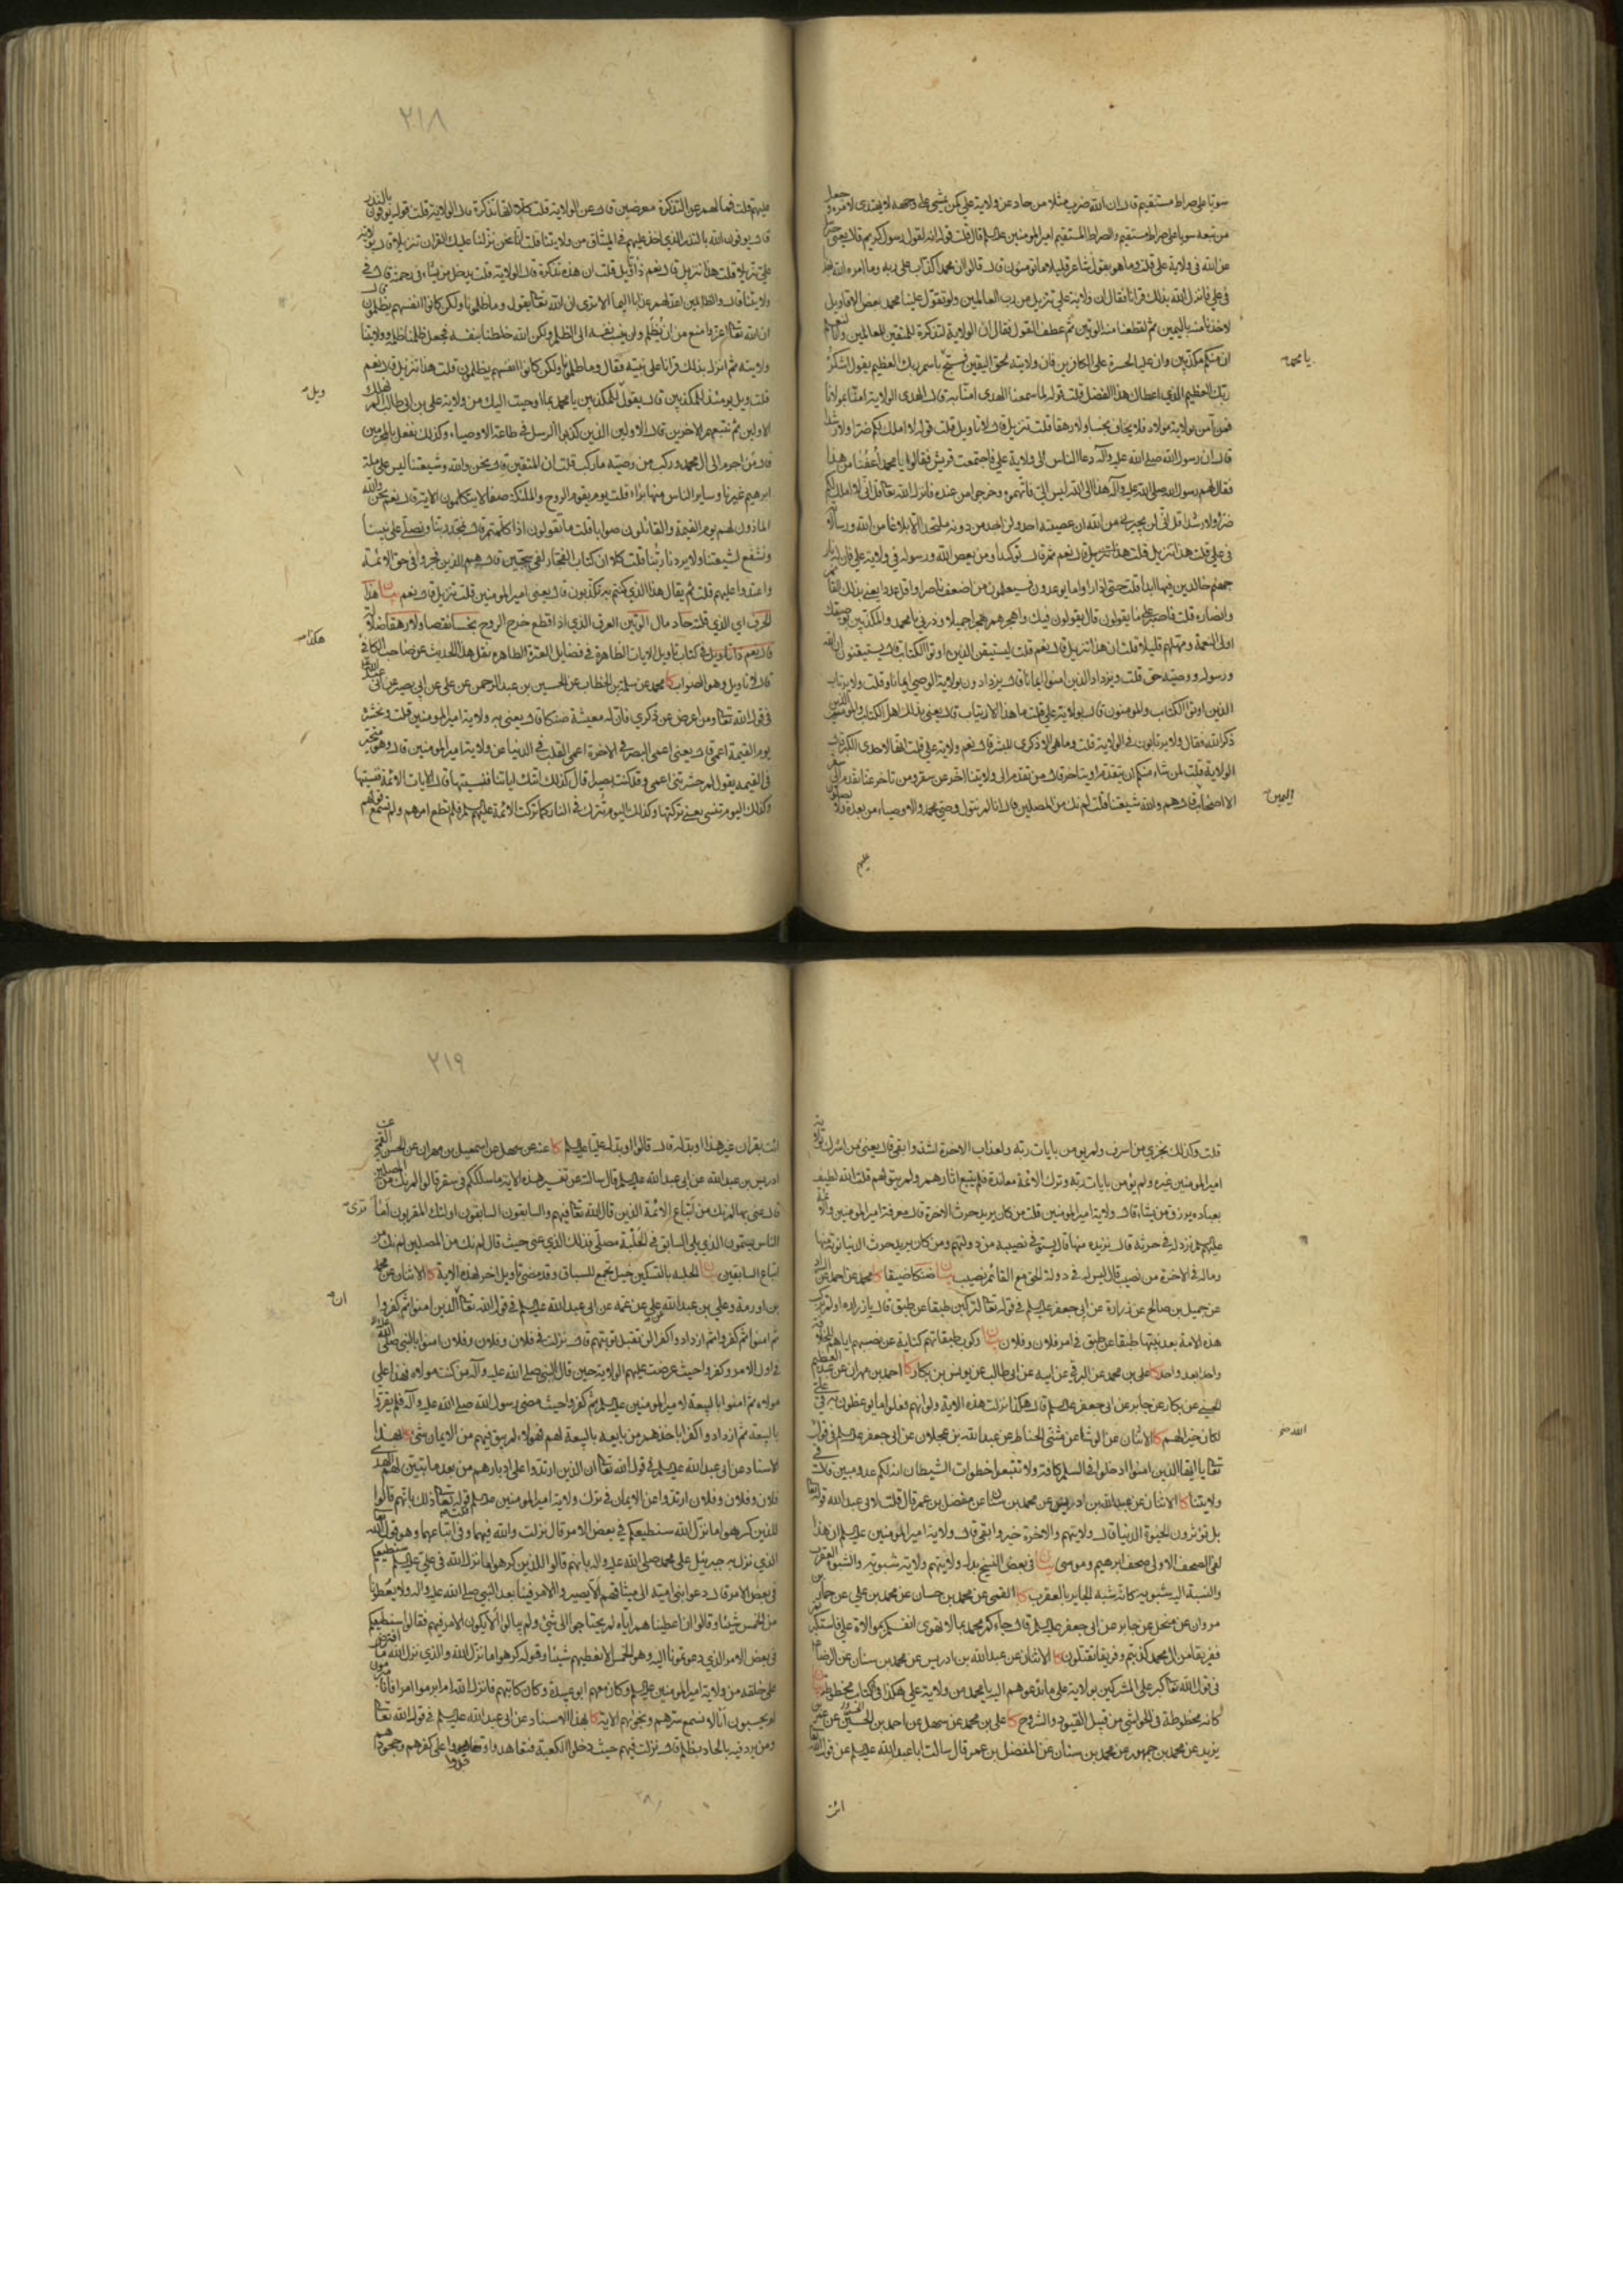 سويا على صراط مستقيم قال ان الله ضرب مثلا من حاد عن ولاية علي كمن يمشي على وجهه لا يهتدى لامره وجعل
من تبعه سويا على صراط مستقيم والصراط المستقيم امير المؤمنين قال قلت قوله انه لقول رسول كريم قال يعني
عن الله في ولاية علي قلت وما هو بقول شاعر قليلا ما تؤمنون قال قالوا ان محمدا كذاب على ربه وما امره الله بهذا
في علي فانزل الله بذلك قرانا فقال ان ولاية علي تنزيل من رب العالمين ولو تقول علينا محمد بعض الاقاويل
لاخذنا منه باليمين ثم لقطعنا منه الوتين ثم عطف القول فقال ان الولاية لتذكرة للمتقين للعالمين وانا لنعلم
ان منكم مكذبين وان عليا لحسرة على الكافرين وان ولايته لحق اليقين فسبح باسم ربك العظيم يقول اشكر
يا محمد
ربك العظيم الذي اعطاك هذا الفضل قلت قوله لما سمعنا الهدى امنا به قال الهدى الولاية امنا بمولانا
فمن آمن بولاية مولاه فلا يخاف بخسا ولا رهقا قلت تنزيل قال لا تاويل قلت قوله لا املك لكم ضرا ولا رشدا
قال ان رسول الله صلى الله عليه وآله دعا الناس الى ولاية علي فاجتمعت قريش فقالوا يا محمد اعفنا من هذا
فقال لهم رسول الله صلى الله عليه وآله هذا الى الله ليس الي فاتهموه وخرجوا من عنده فانزل الله قل اني لا املك لكم
ضرا ولا رشدا قل اني لن يجيرني من الله ان عصيته احد ولن اجد من دونه ملتحدا الا بلاغا من الله ورسالاته
في علي قلت هذا تنزيل قال نعم ثم قال توكيدا ومن يعص الله ورسوله في ولاية علي فان له نار
جهنم خالدين فيها ابدا قلت حتى اذا راوا ما يوعدون فسيعلمون من اضعف ناصرا واقل عددا يعني بذلك القائم
وانصاره قلت فاصبر على ما يقولون قال يقولون فيك واهجرهم هجرا جميلا وذرني يا محمد والمكذبين بوصيك
اولى النعمة ومهلهم قليلا قلت ان هذا تنزيل قال نعم قلت ليستيقن الذين اوتوا الكتاب قال يستيقنون ان الله
ورسوله ووصيه حق قلت ويزداد الذين امنوا ايمانا قال يزدادون بولاية الوصي ايمانا قلت ولا يرتاب
الذين اوتوا الكتاب والمؤمنون قال بولاية علي قلت ما هذا الارتياب قال يعني بذلك اهل الكتاب والمؤمنين الذين
ذكر الله فقال ولا يرتابون في الولاية قلت وما هي الا ذكرى للبشر قال نعم ولاية علي قلت انها لاحدى الكبر قال
الولاية قلت لمن شاء منكم ان يتقدم او يتاخر قال من تقدم الى ولايتنا اخر عن سقر ومن تاخر عنا تقدم الى سقر
الا اصحاب قال هم والله شيعتنا قلت لم نك من المصلين قال انا لم نتول وصي محمد والاوصياء من بعده ولا يصلون
اليمين
عليهم
٢١٨
عليهم قلت فما لهم عن التذكرة معرضين قال عن الولاية قلت كلا انها تذكرة قال الولاية قلت قوله يوفون بالنذر
قال يوفون الله بالنذر الذي اخذ عليهم في الميثاق من ولايتنا قلت انا نحن نزلنا عليك القران تنزيلا قال بولاية
علي تنزيلا قلت هذا تنزيل قال نعم ذا تاويل قلت ان هذه تذكرة قال الولاية قلت يدخل من يشاء في رحمته قال في
ولايتنا قال والظالمين اعد لهم عذابا اليما الا ترى ان الله يقول وما ظلمونا ولكن كانوا انفسهم يظلمون قال
ان الله اعز وامنع من ان يظلم ولن ينسب نفسه الى الظلم ولكن الله خلطنا بنفسه فجعل ظلمنا ظلمه وولايتنا
ولايته ثم انزل بذلك قرانا على نبيه فقال وما ظلمونا ولكن كانوا انفسهم يظلمون قلت هذا تنزيل قال نعم
ويل
قلت ويل يومئذ للمكذبين قال يقول للمكذبين يا محمد بما اوحيت اليك من ولاية علي بن ابي طالب الم نهلك
الاولين ثم نتبعهم الاخرين قال الاولين الذين كذبوا الرسل في طاعة الاوصياء وكذلك نفعل بالمجرمين
قال من اجرم الى ال محمد وركب من وصيه ما ركب قلت ان المتقين قال نحن والله وشيعتنا ليس على ملة
ابرهيم غيرنا وساير الناس منها براء قلت يوم يقوم الروح والملئكة صفا لا يتكلمون الاية قال نعم نحن والله
الماذون لهم يوم القيمة والقائلون صوابا قلت ما تقولون اذا كلمتم قال نحمد ربنا ونصلي على نبينا
ونشفع لشيعتنا ولا يردنا ربنا قلت كلا ان كتاب الفجار لفي سجين قال هم الذين فجروا في حق الائمة
واعتدوا عليهم قلت ثم يقال هذا الذي كنتم به تكذبون قال يعني امير المؤمنين قلت تنزيل قال نعم بيان هذا
الحرف اي الذي قلت حاد مال الوتين العرق الذي اذا قطع خرج الروح بخسا نقصا ولا رهقا ضلالة
هكذا
قال نعم ذا تاويل في كتاب تاويل الايات الظاهرة في فضايل العترة الطاهرة نقل هذا الحديث عن صاحب الكافي
قال لا تاويل وهو الصواب كا محمد عن سلمة بن الخطاب عن الحسين بن عبد الرحمن عن علي عن ابي بصير عن ابي عبد الله
في قول الله ومن اعرض عن ذكري فان له معيشة ضنكا قال يعني به ولاية امير المؤمنين قلت ونحشره
يوم القيمة اعمى قال يعني اعمى البصر في الاخرة اعمى القلب في الدنيا عن ولاية امير المؤمنين قال وهو متحير
في القيمة يقول لم حشرتني اعمى وقد كنت بصيرا قال كذلك اتتك اياتنا فنسيتها قال الايات الائمة فنسيتها
وكذلك اليوم تنسى يعني تركتها وكذلك اليوم تترك في النار كما تركت الائمة فلم تطع امرهم ولم تسمع قولهم
قلت وكذلك نجزي من اسرف ولم يؤمن بايات ربه ولعذاب الاخرة اشد وابقى قال يعني من اشرك بولاية
امير المؤمنين غيره ولم يؤمن بايات ربه وترك الائمة معاندة فلم يتبع اثارهم ولم يتولهم قلت الله لطيف
بعباده يرزق من يشاء قال ولاية امير المؤمنين قلت من كان يريد حرث الاخرة قال معرفة امير المؤمنين والائمة
نزد له في حرثه قال نزيده منها قال يستوفي نصيبه من دولتهم ومن كان يريد حرث الدنيا نؤته منها
وماله في الاخرة من نصيب قال ليس له في دولة الحق مع القائم نصيب بيان ضنكا ضيقا كا محمد عن احمد عن
عن جميل بن صالح عن زرارة عن ابي جعفر في قوله لتركبن طبقا عن طبق قال يا زرارة اولم تركب
هذه الامة بعد نبيها طبقا عن طبق في امر فلان وفلان بيان ركوب طبقاتهم كناية عن نصبهم اياهم للخلافة
واحدا بعد واحد كا علي بن محمد عن البرقي عن ابيه عن ابي طالب عن يونس بن بكار كا احمد بن مهران عن عبد العظيم
الحسني عن بكار عن جابر عن ابي جعفر قال هكذا نزلت هذه الاية ولو انهم فعلوا ما يوعظون به في علي
لكان خيرا لهم كا الاثنان عن الوشا عن مثنى الحناط عن عبد الله بن عجلان عن ابي جعفر في قول
يا ايها الذين امنوا ادخلوا في السلم كافة ولا تتبعوا خطوات الشيطان انه لكم عدو مبين قال في
ولايتنا كا الاثنان عن عبد الله بن ادريس عن محمد بن سنان عن مفضل بن عمر قال قلت لابي عبد الله قوله
بل تؤثرون الحيوة الدنيا قال ولايتهم والاخرة خير وابقى قال ولاية امير المؤمنين ان هذا
لفي الصحف الاولى صحف ابرهيم وموسى بيان في بعض النسخ بدل ولايتهم ولاية شبويه والشبوة العقرب
والنسبة اليه شبويه كانه شبه الجاير بالعقرب كا القمي عن محمد بن حسان عن محمد بن علي عن عمار بن
مروان عن منخل عن جابر عن ابي جعفر قال جاءكم محمد بما لا تهوى انفسكم بموالاة علي فاستكبرتم
ففريقا من ال محمد كذبتم وفريقا تقتلون كا الاثنان عن عبد الله بن ادريس عن محمد بن سنان عن الرضا
في قول الله كبر على المشركين بولاية علي ما تدعوهم اليه يا محمد من ولاية علي هكذا في الكتاب مخطوطة بيان
كانه مخطوطة في الحواشي من قبيل القيود والشروح كا علي بن محمد عن سهل عن احمد بن الحسين عن عمر بن
يزيد عن محمد بن جمهور عن محمد بن سنان عن المفضل بن عمر قال سالت ابا عبد الله عن قول الله
ائت
٢١٩
ائت بقران غير هذا او بدله قال قالوا او بدل عليا كا عنه عن سهل عن اسمعيل بن مهران عن الحسن القمي عن
ادريس بن عبد الله عن ابي عبد الله قال سالته عن تفسير هذه الاية ما سلككم في سقر قالوا لم نك من المصلين
قال عنى بها لم نك من اتباع الائمة الذين قال الله فيهم والسابقون السابقون اولئك المقربون اما
ترى
الناس يسمون الذي يلي السابق في الحلبة مصلي فذلك الذي عنى حيث قال لم نك من المصلين لم نك من
اتباع السابقين بيان الحلبة بالتسكين خيل تجمع للسباق وقد مضى تاويل اخر لهذه الاية كا الاثنان عن محمد
بن اورمة وعلي بن عبد الله عن علي عن عمه عن ابي عبد الله في قول الله الذين امنوا ثم كفروا
ان
ثم امنوا ثم كفروا ثم ازدادوا كفرا لن تقبل توبتهم قال نزلت في فلان وفلان وفلان امنوا بالنبي صلى الله عليه
في اول الامر وكفروا حيث عرضت عليهم الولاية حين قال النبي صلى الله عليه وآله من كنت مولاه فهذا علي
مولاه ثم امنوا بالبيعة لامير المؤمنين ثم كفروا حيث مضى رسول الله صلى الله عليه وآله فلم يقروا
بالبيعة ثم ازدادوا كفرا باخذهم من بايعه بالبيعة لهم فهؤلاء لم يبق فيهم من الايمان شيء كا بهذا
الاسناد عن ابي عبد الله في قول الله ان الذين ارتدوا على ادبارهم من بعد ما تبين لهم الهدى
فلان وفلان وفلان ارتدوا عن الايمان في ترك ولاية امير المؤمنين قلت قوله ذلك بانهم قالوا
للذين كرهوا ما نزل الله سنطيعكم في بعض الامر قال نزلت والله فيهما وفي اتباعهما وهو قول الله
الذي نزل به جبرئيل على محمد صلى الله عليه واله بانهم قالوا للذين كرهوا ما نزل الله في علي سنطيعكم
في بعض الامر قال دعوا بني امية الى ميثاقهم الا يصيروا الامر فينا بعد النبي صلى الله عليه واله ولا يعطونا
من الخمس شيئا وقالوا ان اعطيناهم اياه لم يحتاجوا الى شيء ولم يبالوا الا يكون الامر فيهم فقالوا سنطيعكم
في بعض الامر الذي دعوتمونا اليه وهو الخمس الا نعطيهم شيئا وقوله كرهوا ما نزل الله والذي نزل الله ما افترض
على خلقه من ولاية امير المؤمنين وكان معهم ابو عبيدة وكان كاتبهم فانزل الله ام ابرموا امرا فانا مبرمون
ام يحسبون انا لا نسمع سرهم ونجواهم الاية كا بهذا الاسناد عن ابي عبد الله في قول الله
ومن يرد فيه بالحاد بظلم قال نزلت فيهم حيث دخلوا الكعبة فتعاهدوا وتعاقدوا على كفرهم وجحودهم